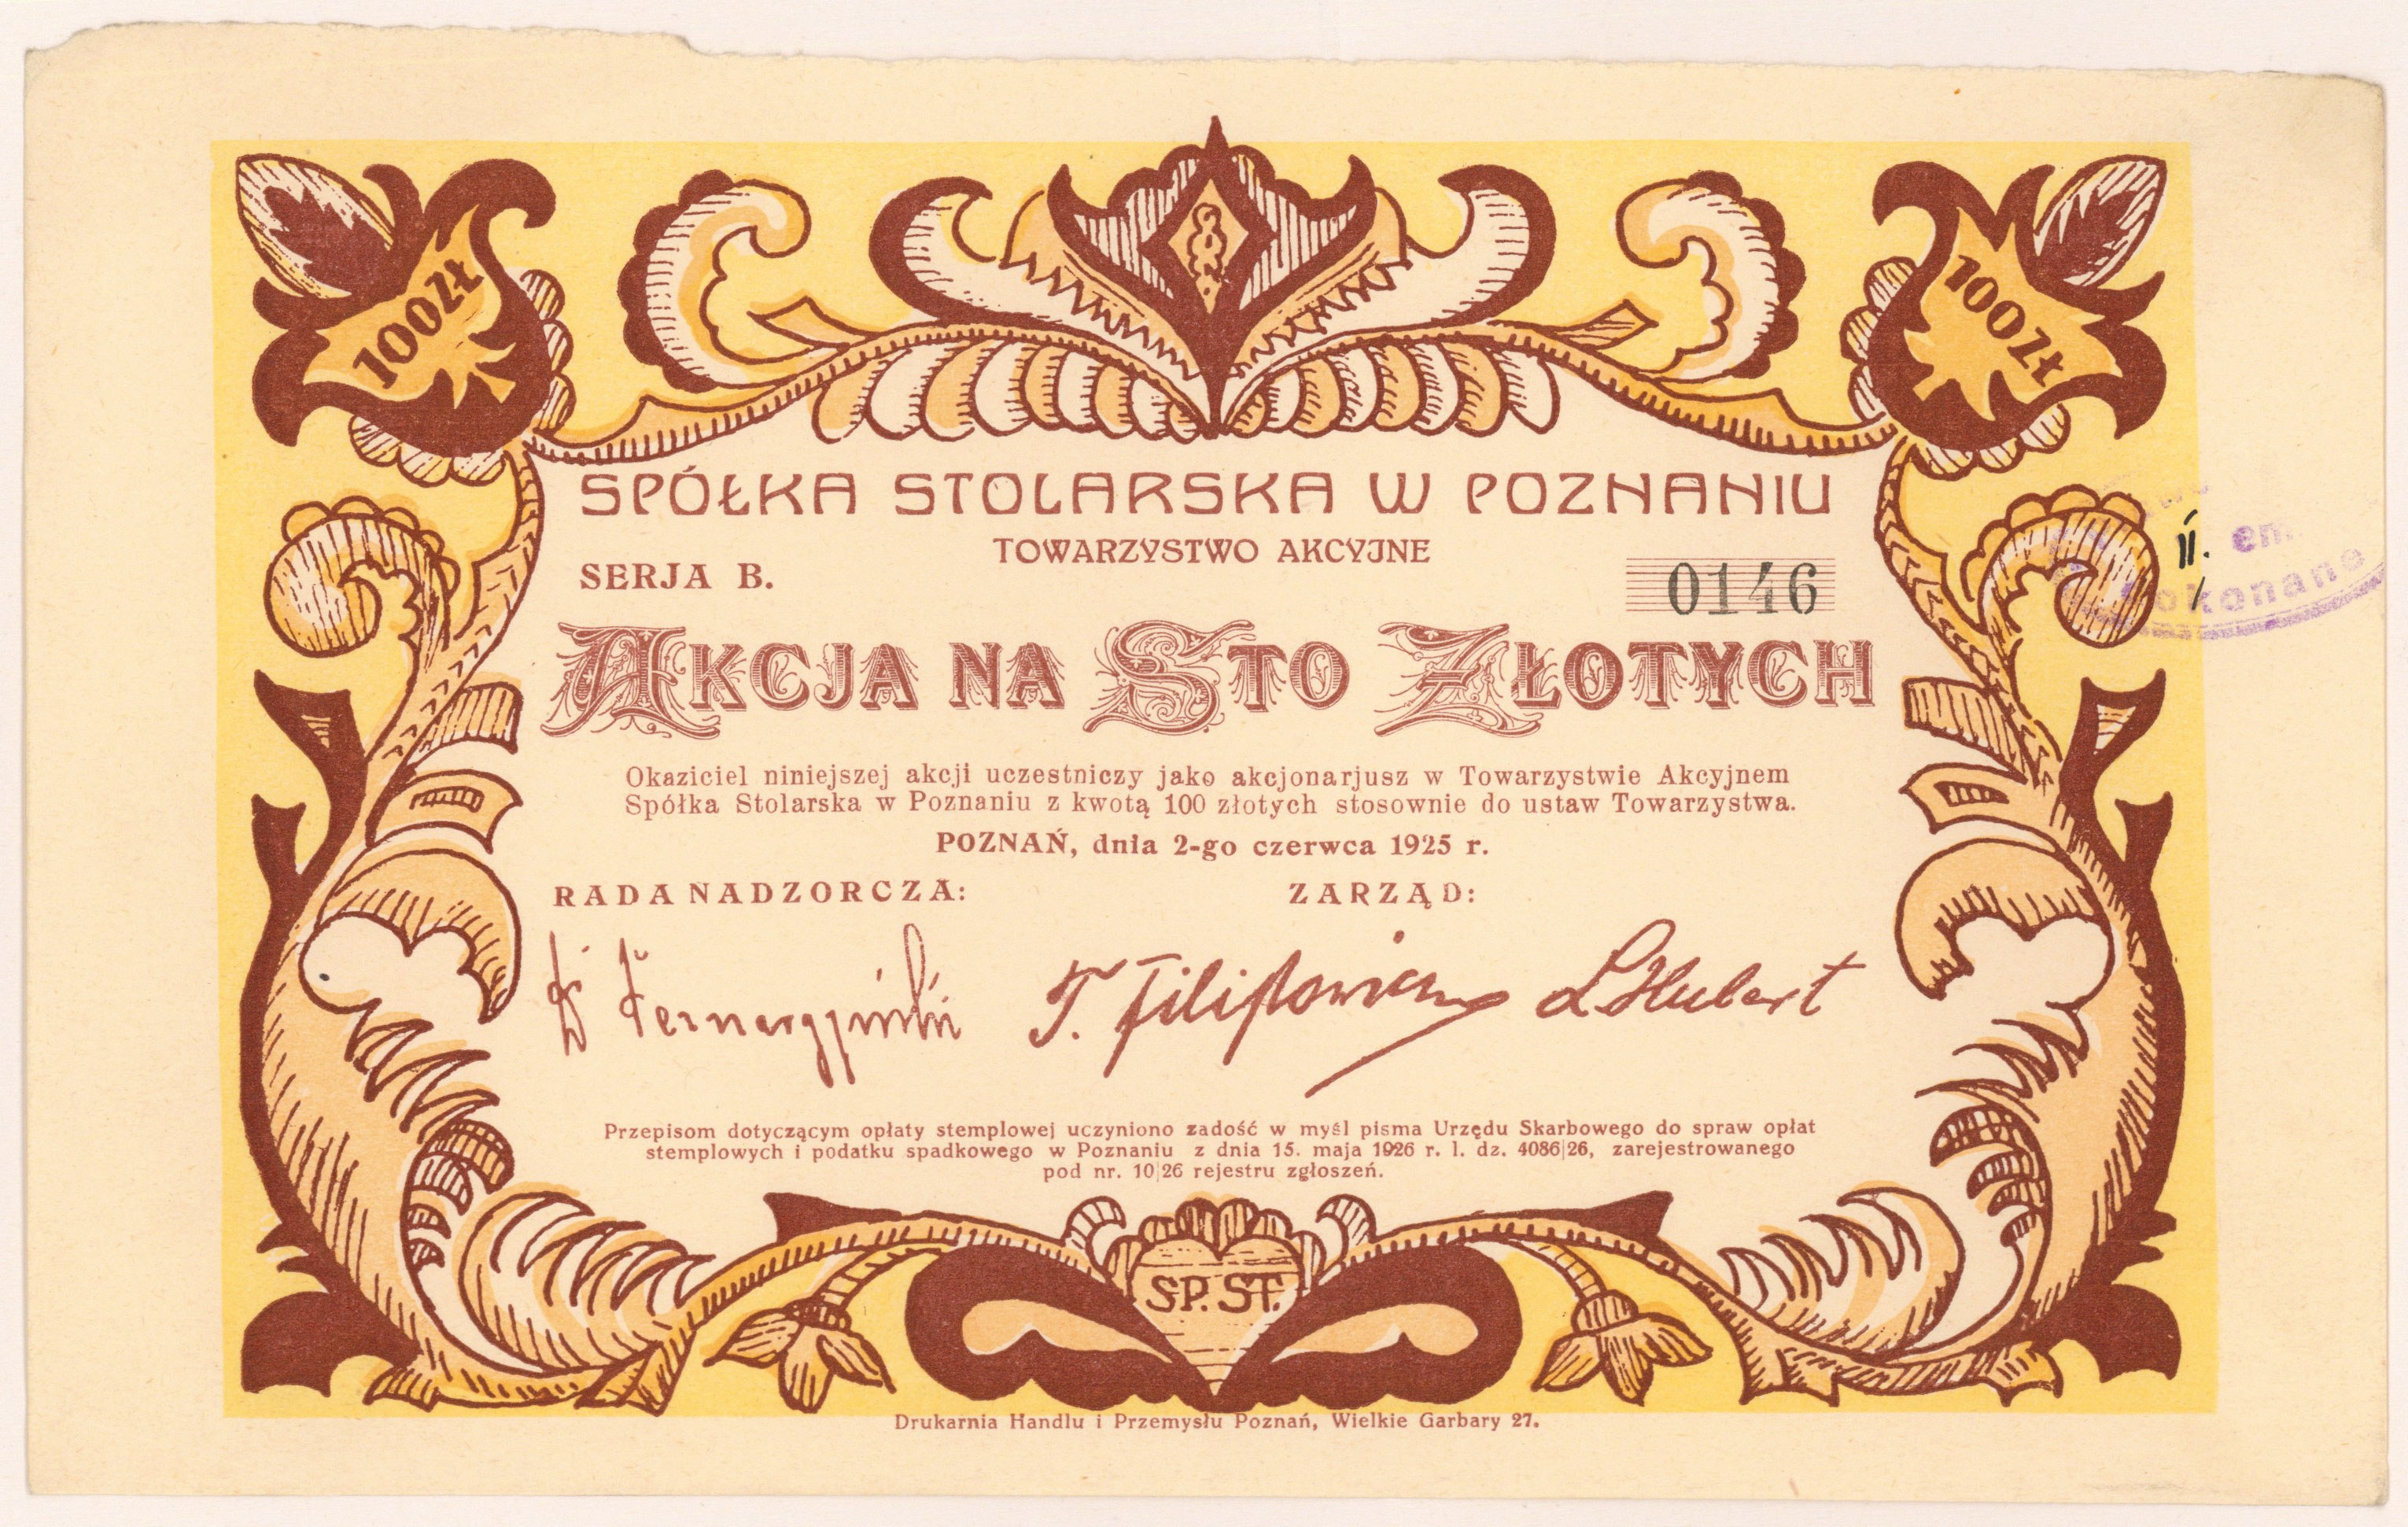 100 ZŁ
100 ZŁ
SPÓŁKA STOLARSKA W POZNANIU
TOWARZYSTWO AKCYJNE
SERJA B.
0146
II. em.
okonano
AKCJA NA STO ZŁOTYCH
Okaziciel niniejszej akcji uczestniczy jako akcjonarjusz w Towarzystwie Akcyjnem
Spółka Stolarska w Poznaniu z kwotą 100 złotych stosownie do ustaw Towarzystwa.
POZNAŃ, dnia 2-go czerwca 1925 r.
RADA NADZORCZA: ZARZĄD:
T. Filipowicz L Hubert
Przepisom dotyczącym opłaty stemplowej uczyniono zadość w myśl pisma Urzędu Skarbowego do spraw opłat
stemplowych i podatku spadkowego w Poznaniu z dnia 15. maja 1926 r. l. dz. 4086|26, zarejestrowanego
pod nr. 10|26 rejestru zgłoszeń.
SP. ST.
Drukarnia Handlu i Przemysłu Poznań, Wielkie Garbary 27.